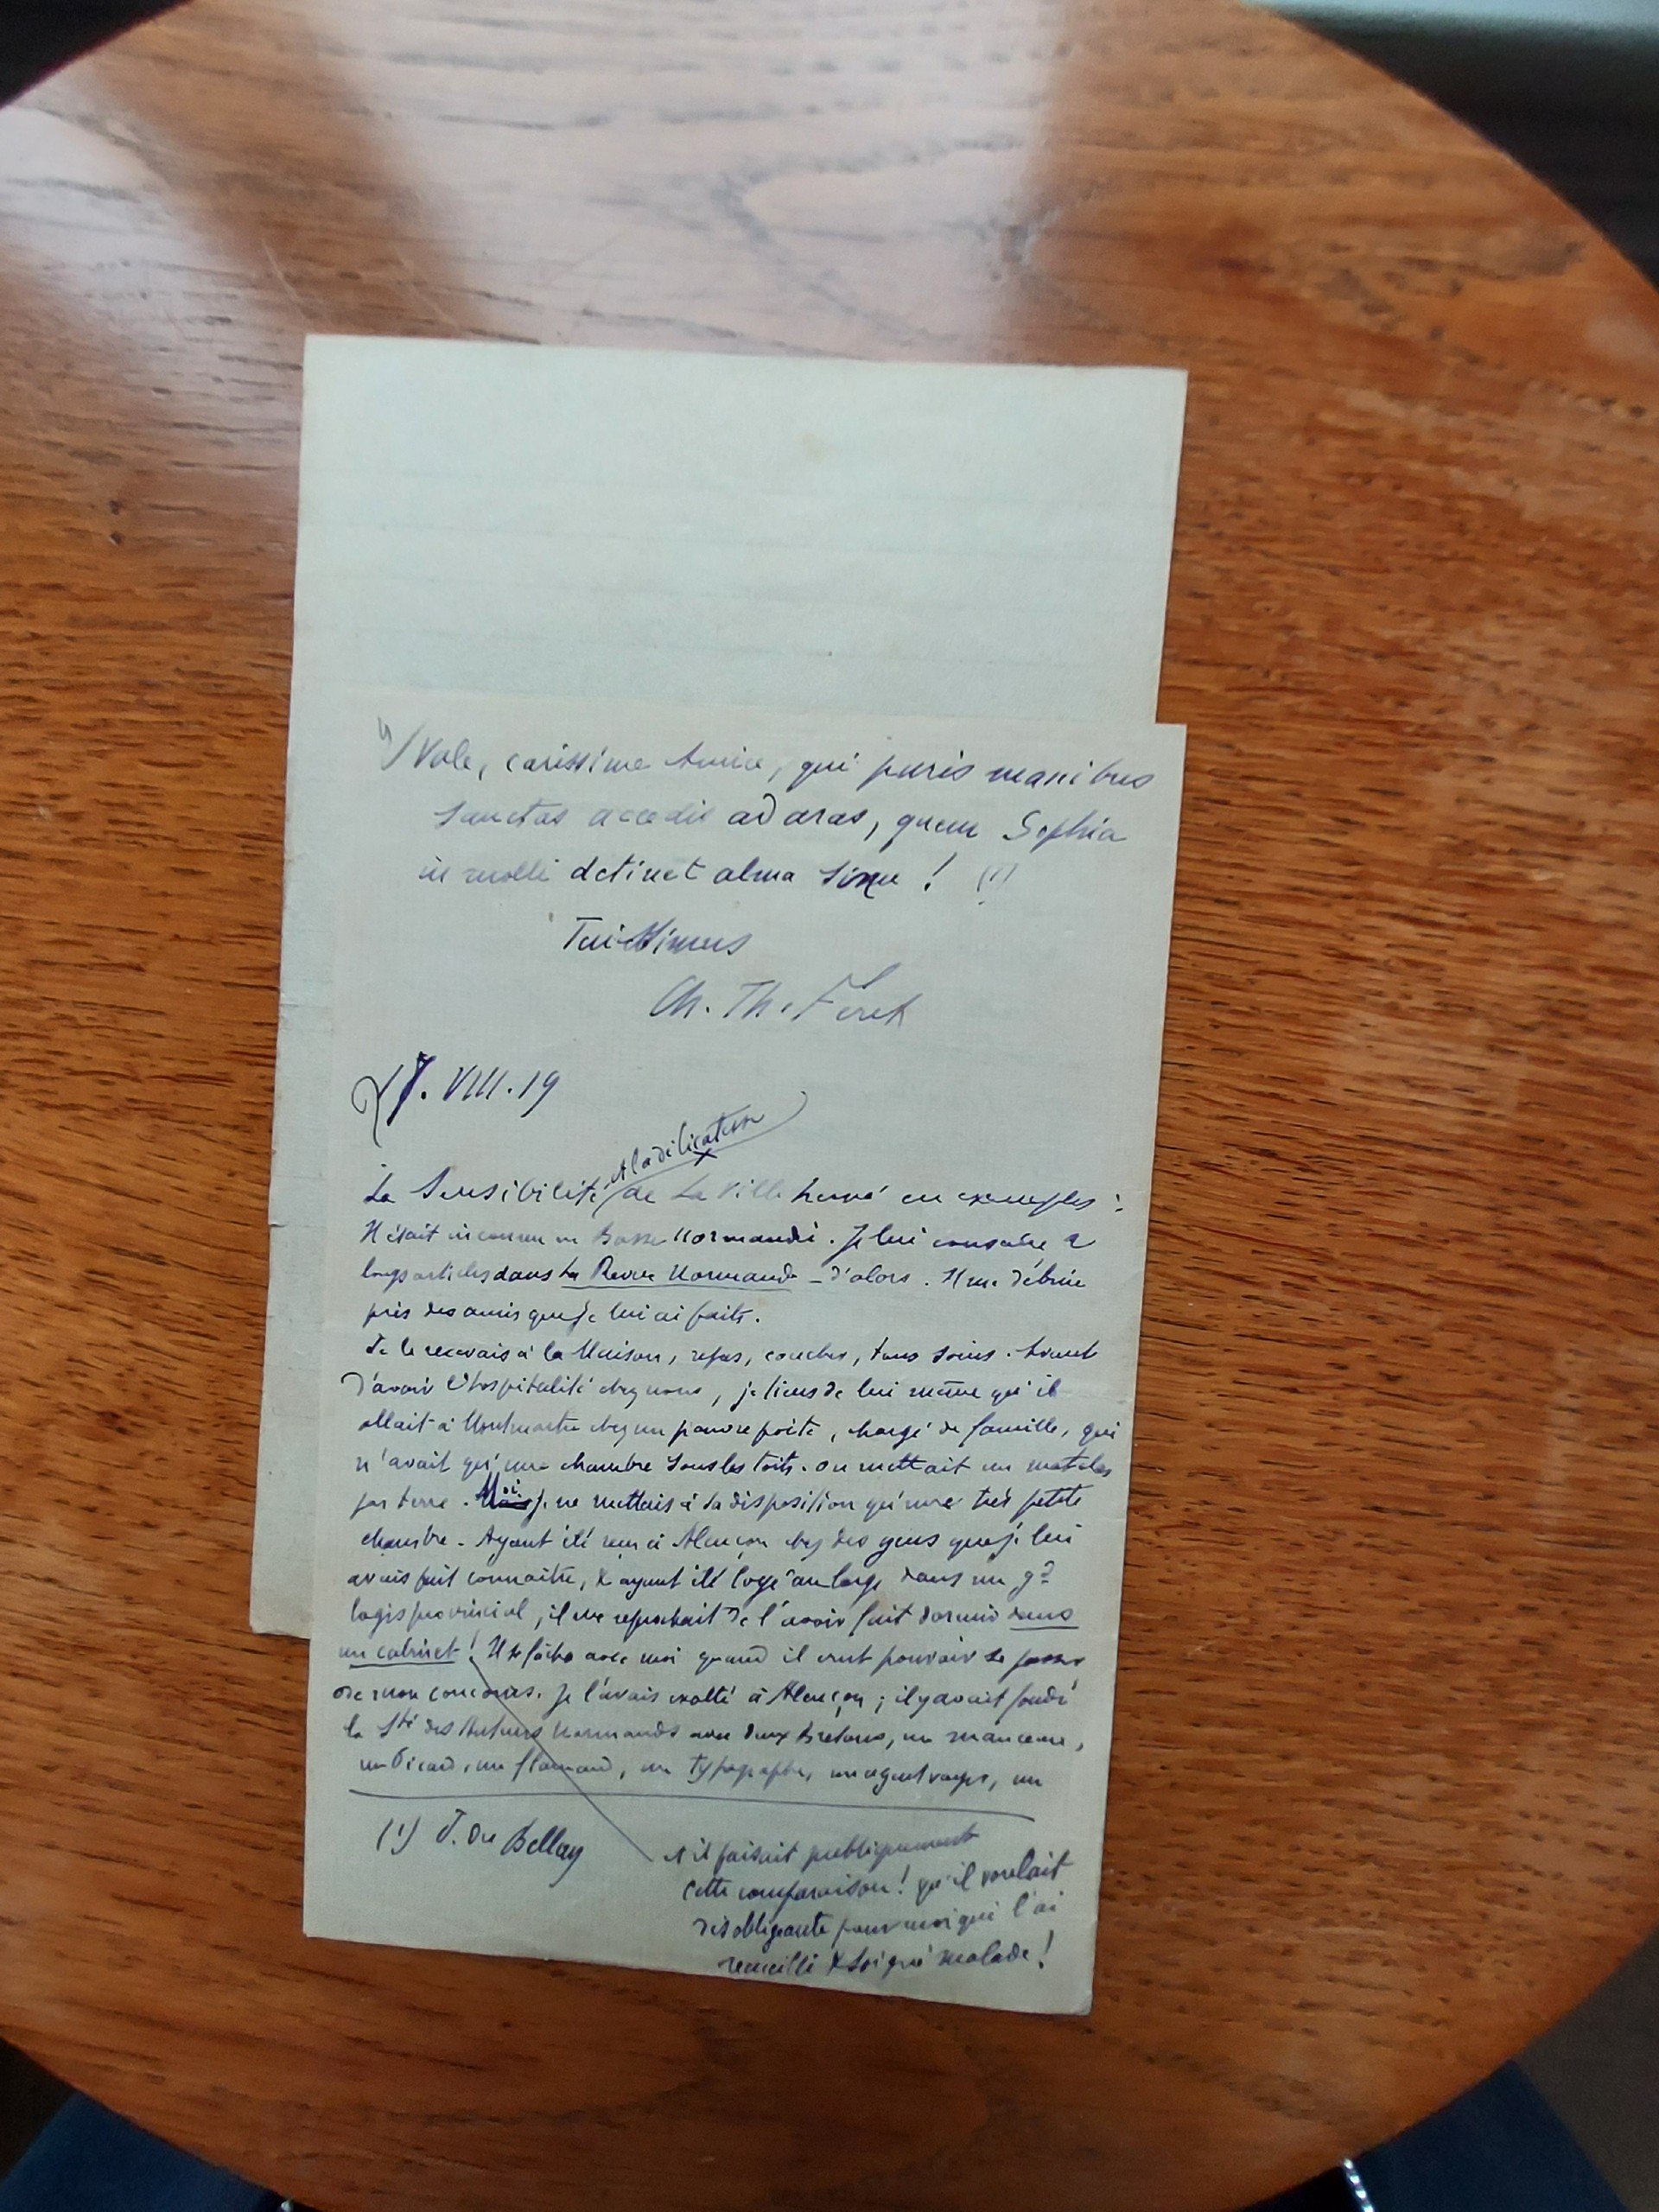 4/ Vale, carissime Amice, qui puris manibus
sanctas accedis ad aras, quem Sophia
in molli detinet alma sinu ! (1)
Tuissimus
Ch. Th. Féret
27. VIII. 19
et la délicatesse
La Sensibilité de La Villehervé en exemples :
Il était inconnu en Basse Normandie. Je lui consacre 2
longs articles dans La Revue Normande d'alors. Il me débine
près des amis que je lui ai faits.
Je le recevais à la Maison, repas, couches, tous soins. Avant
d'avoir l'hospitalité chez nous, je tiens de lui même qu'il
allait à Montmartre chez un pauvre poète, chargé de famille, qui
n'avait qu'une chambre sous les toits. On mettait un matelas
par terre. Moi je ne mettais à sa disposition qu'une très petite
chambre. Ayant été reçu à Alençon chez des gens que je lui
avais fait connaître, & ayant été logé au large dans un gd
logis provincial, il me reprochait de l'avoir fait dormir dans
un cabinet ! Il se fâcha avec moi quand il crut pouvoir se passer
de mon concours. Je l'avais exalté à Alençon ; il y avait fondé
la Sté des Auteurs Normands avec deux Bretons, un manceau,
un Picard, un flamand, un typographe, un agent voyer, un
(1) J. Du Bellay
et il faisait publiquement
cette comparaison ! qu'il voulait
désobligeante pour moi qui l'ai
recueilli & soigné malade !